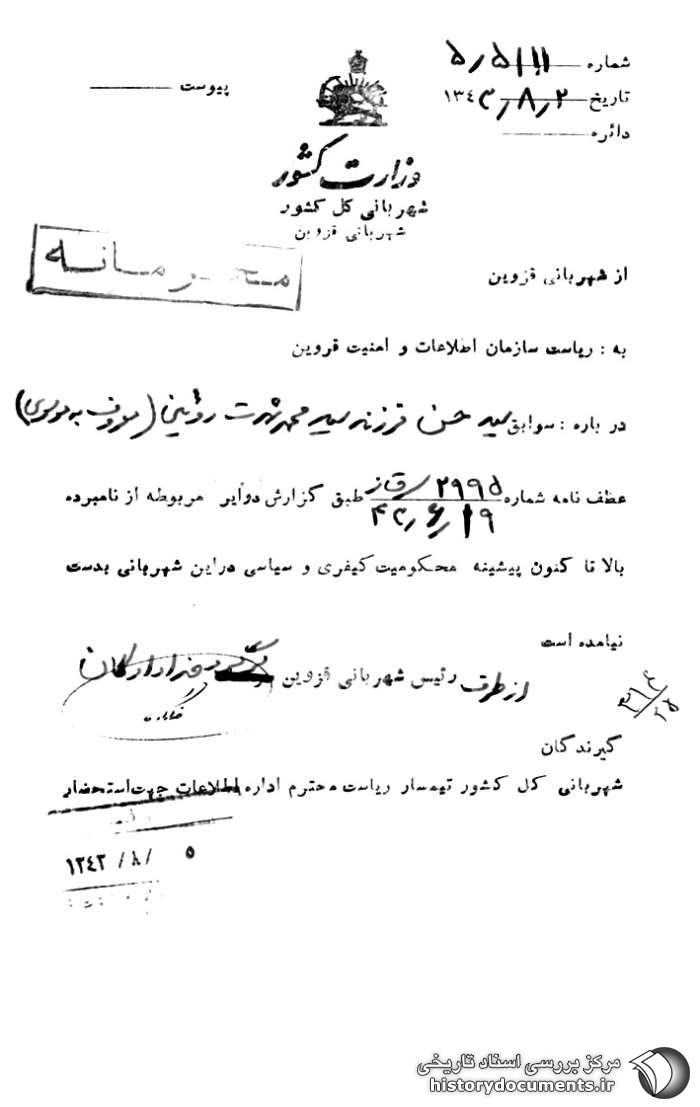 شماره ۵٫۵۱۱۱
تاریخ ۱۳۴۳٫۸٫۲
دائره
پیوست
وزارت کشور
شهربانی کل کشور
شهربانی قزوین
محرمانه
از شهربانی قزوین
به : ریاست سازمان اطلاعات و امنیت قزوین
در باره : سوابق سید حسن فرزند سید محمد شهرت رؤینی (معروف به موسوی)
عطف نامه شماره ۲۹۹۵ / ق ز طبق گزارش دوایر مربوطه از نامبرده
۴۳٫۶٫۱۹
بالا تا کنون پیشینه محکومیت کیفری و سیاسی دراین شهربانی بدست
نیامده است
از طرف رئیس شهربانی قزوین
گیرندگان
شهربانی کل کشور تیمسار ریاست محترم اداره اطلاعات جهت استحضار
۵ /۸/ ۱۳۴۳
مرکز بررسی اسناد تاریخی
historydocuments.ir